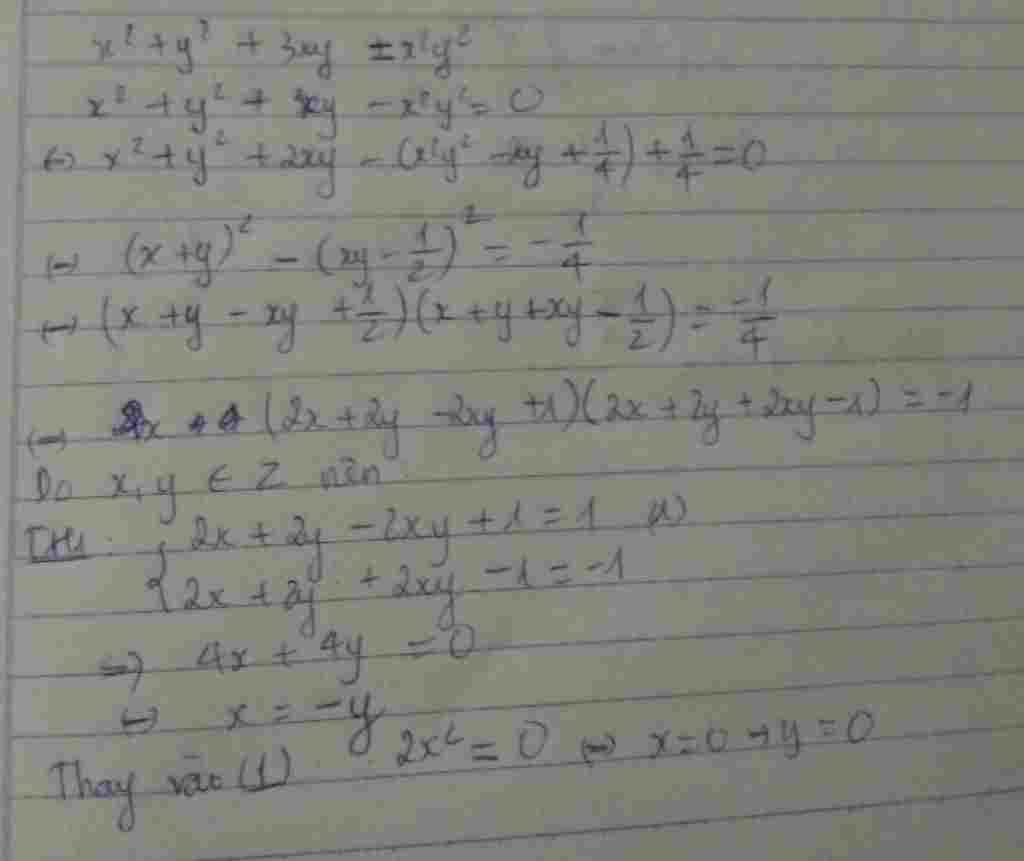 x² + y² + 3xy = x²y²
x² + y² + 3xy - x²y² = 0
⇔ x² + y² + 2xy - (x²y² - xy + 1/4) + 1/4 = 0
⇔ (x + y)² - (xy - 1/2)² = -1/4
⇔ (x + y - xy + 1/2)(x + y + xy - 1/2) = -1/4
⇔ (2x + 2y - 2xy + 1)(2x + 2y + 2xy - 1) = -1
Do x, y ∈ Z nên
TH1: { 2x + 2y - 2xy + 1 = 1 (1)
2x + 2y + 2xy - 1 = -1
⇒ 4x + 4y = 0
⇔ x = -y
Thay vào (1) 2x² = 0 ⇔ x = 0 → y = 0